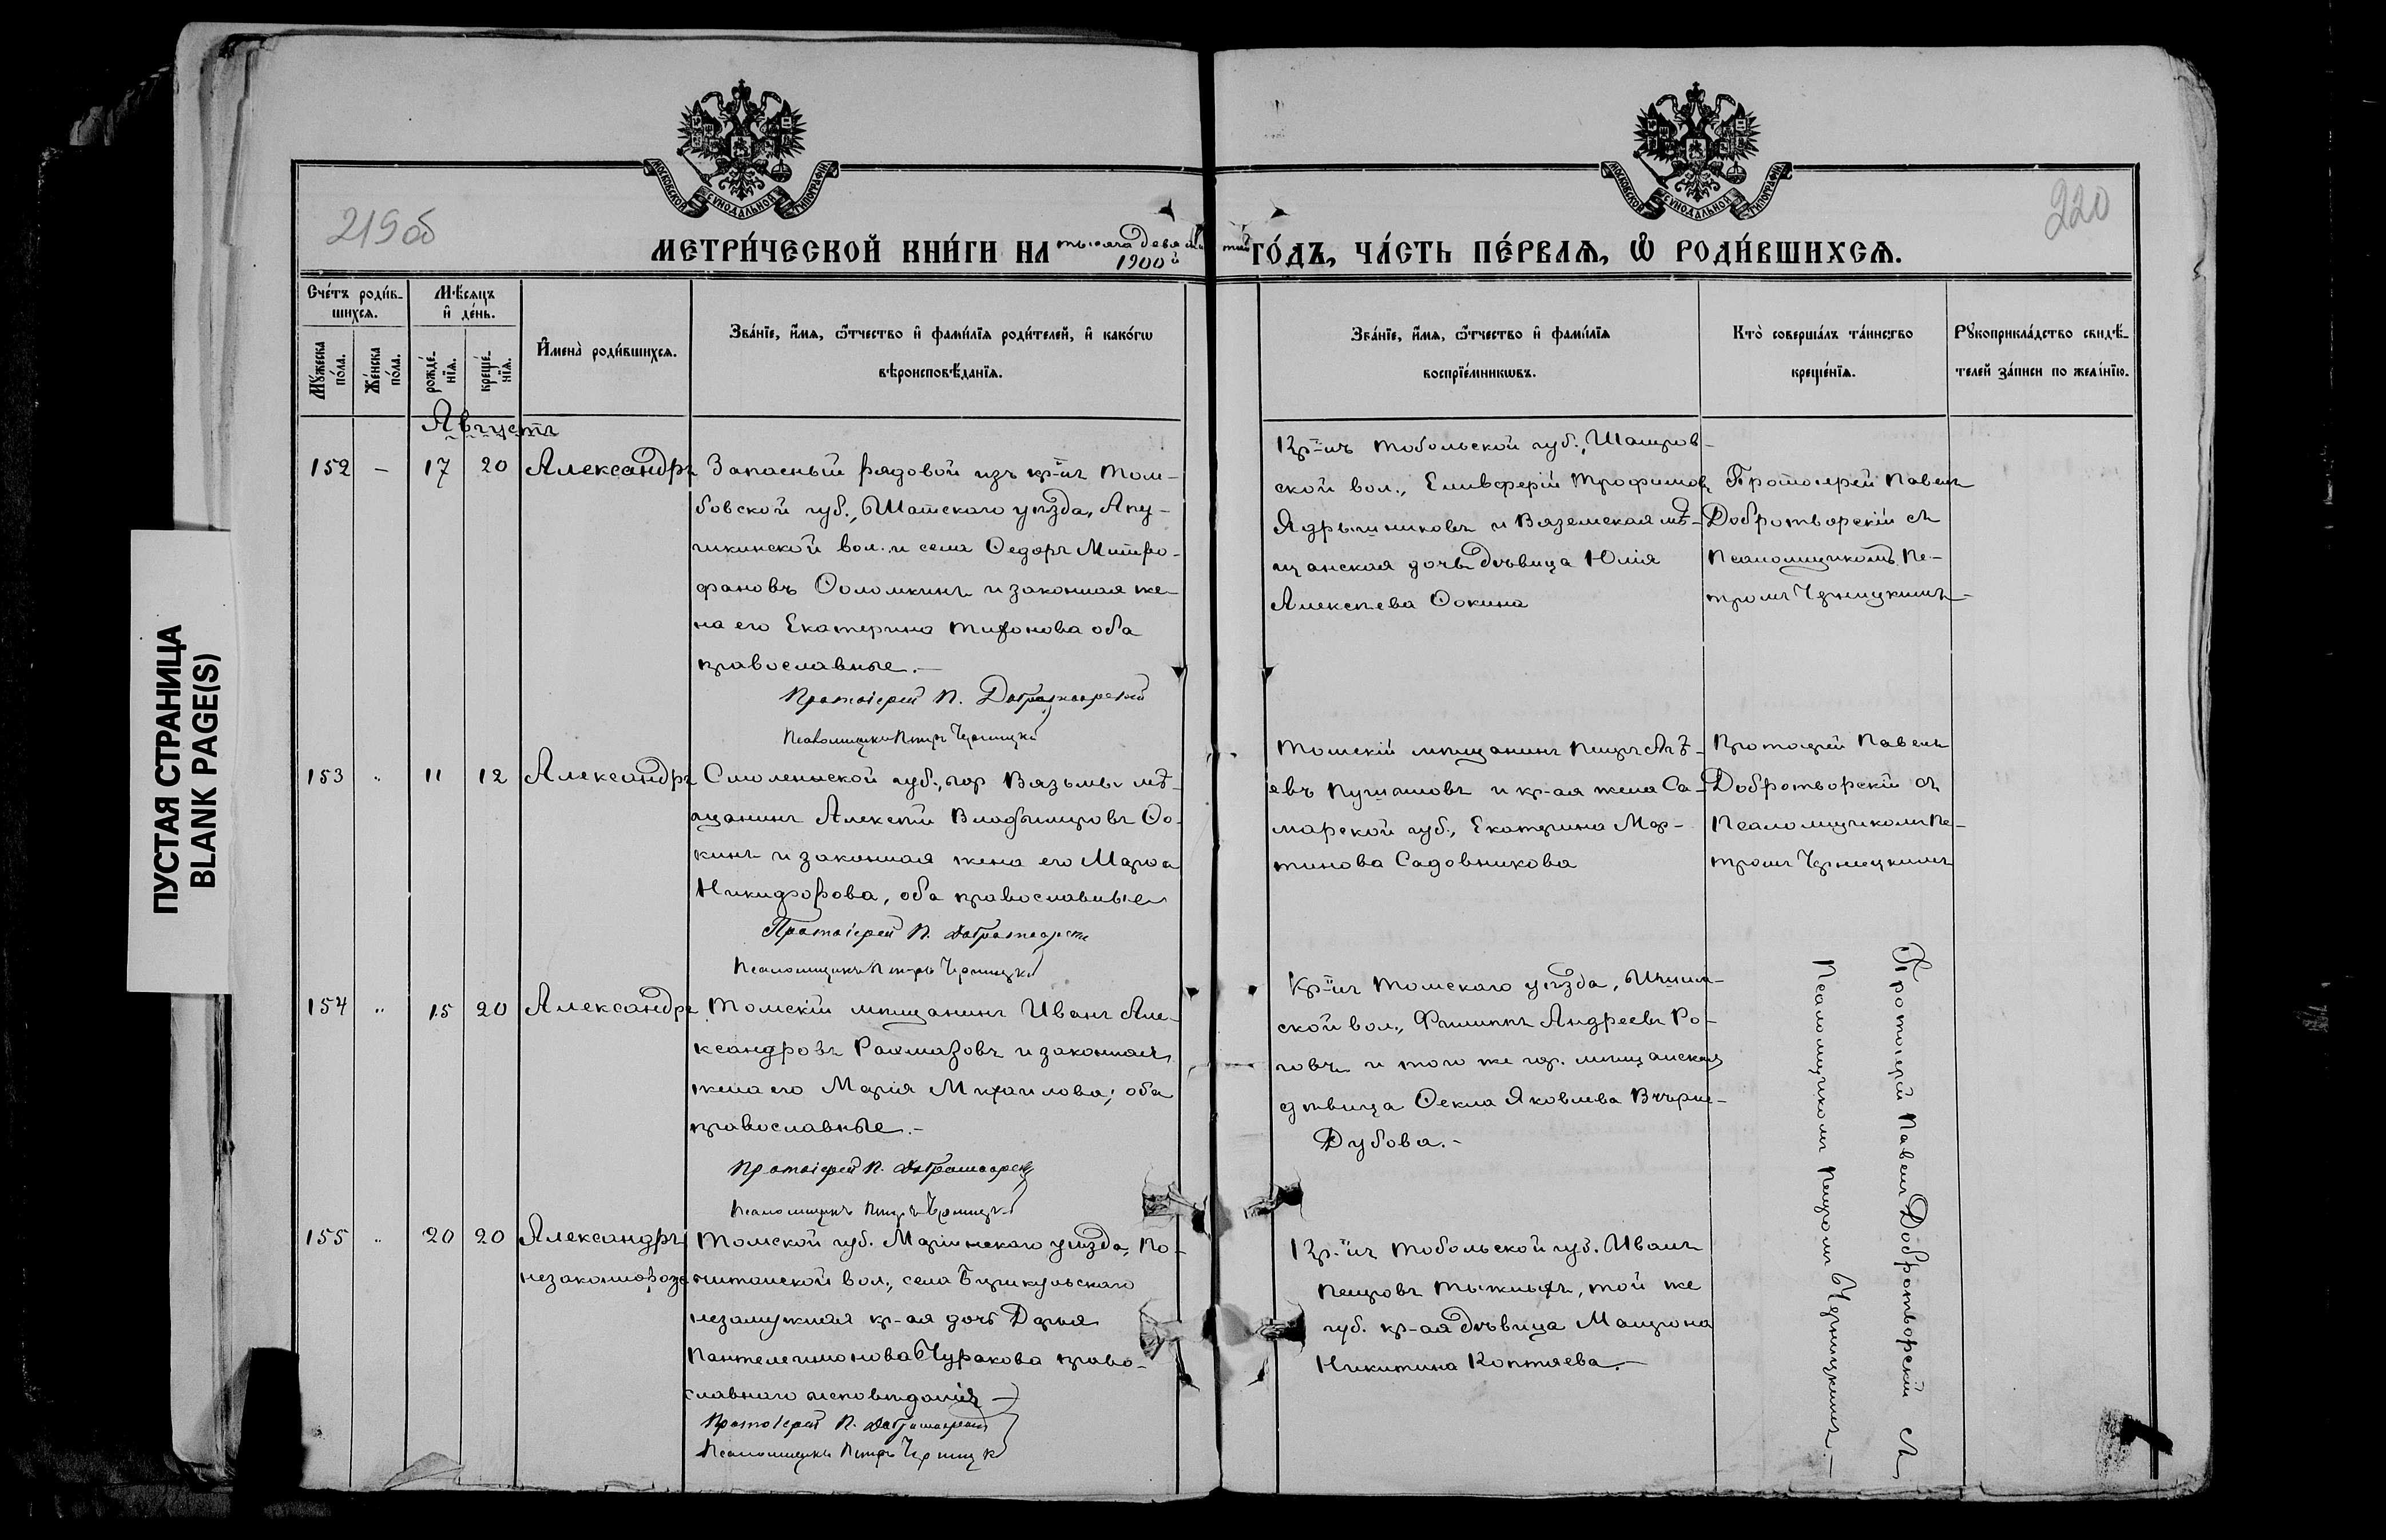 219об
220
МОСКОВСКОЙ СѴНОДАЛЬНОЙ ТИПОГРАФІИ
МОСКОВСКОЙ СѴНОДАЛЬНОЙ ТИПОГРАФІИ
МЕТРИ́ЧЕСКОЙ КНИ́ГИ НА тысяча девятисотый ГО́ДЪ, ЧА́СТЬ ПЕ́РВАЯ, Ѽ РОДИ́ВШИХСЯ.
1900й
Сче́тъ роди́в-
шихся.
Мѣ́сяцъ
и҆ де́нь.
Мꙋ́жеска
по́ла.
Же́нска
по́ла.
рожде́-
нїя.
креще́-
нїя.
И҆мена̀ роди́вшихся.
Зва́нїе, и҆́мя, ѻ҆́тчество и҆ фами́лїя роди́телей, и҆ како́гѡ
вѣроисповѣ́данїя.
Зва́нїе, и҆́мя, ѻ҆́тчество и҆ фами́лїя
воспрїе́мникѡвъ.
Кто̀ соверша́лъ та́инство
креще́нїя.
Рꙋкоприкла́дство свидѣ́-
телей за́писи по жела́нїю.
Августъ
152 — 17 20 Александръ
Запасный рядовой изъ кр-нъ Там-
бовской губ., Шатскаго уѣзда, Апу-
шкинской вол. и села Ѳедоръ Митро-
фановъ Ѳоломкинъ и законная же-
на его Екатерина Тифонова оба
православные.—
Протоіерей П. Добротворскій
Псаломщикъ Петръ Черницкій
Кр-нъ Тобольской губ., Шатров-
ской вол., Елевферій Трофимовъ
Ядрышниковъ и Вяземская мѣ-
щанская дочь дѣвица Юлія
Алексѣева Ѳокина
Протоіерей Павелъ
Добротворскій съ
Псаломщикомъ Пе-
тромъ Черницкимъ
153 " 11 12 Александръ
Смоленской губ., гор Вязьмы мѣ-
щанинъ Алексѣй Владиміровъ Ѳо-
кинъ и законная жена его Марѳа
Никифорова, оба православные
Протоіерей П. Добротворскій
Псаломщикъ Петръ Черницкій
Томскій мѣщанинъ Петръ
евъ и кр-ая жена Са-
марской губ., Екатерина Мар-
тинова Садовникова
Протоіерей Павелъ
Добротворскій съ
Псаломщикомъ Пе-
тромъ Черницкимъ
154 " 15 20 Александръ
Томскій мѣщанинъ Иванъ Але-
ксандровъ Рахмазовъ и законная
жена его Марія Михаилова; оба
православные.—
Протоіерей П. Добротворскій
Псаломщикъ Петръ Черницкій
Кр-нъ Томскаго уѣзда, Ишим-
ской вол., Филиппъ Андреевъ Ро-
говъ и того же гор. мѣщанская
дѣвица Ѳекла Яковлева
Дубова.—
155 " 20 20 Александръ
незаконнорожд
Томской губ. Маріинскаго уѣзда, По-
читанской вол., села Бирикульскаго
незамужная кр-ая дочь Дарья
Пантелеимонова Чуракова право-
славнаго исповѣданія —
Протоіерей П. Добротворскій
Псаломщикъ Петръ Черницкій
Кр-нъ Тобольской губ. Иванъ
Петровъ, той же
губ. кр-ая дѣвица Матрона
Никитина Коптяева.—
Протоіерей Павелъ Добротворскій съ
Псаломщикомъ Петромъ Черницкимъ.—
ПУСТАЯ СТРАНИЦА
BLANK PAGE(S)